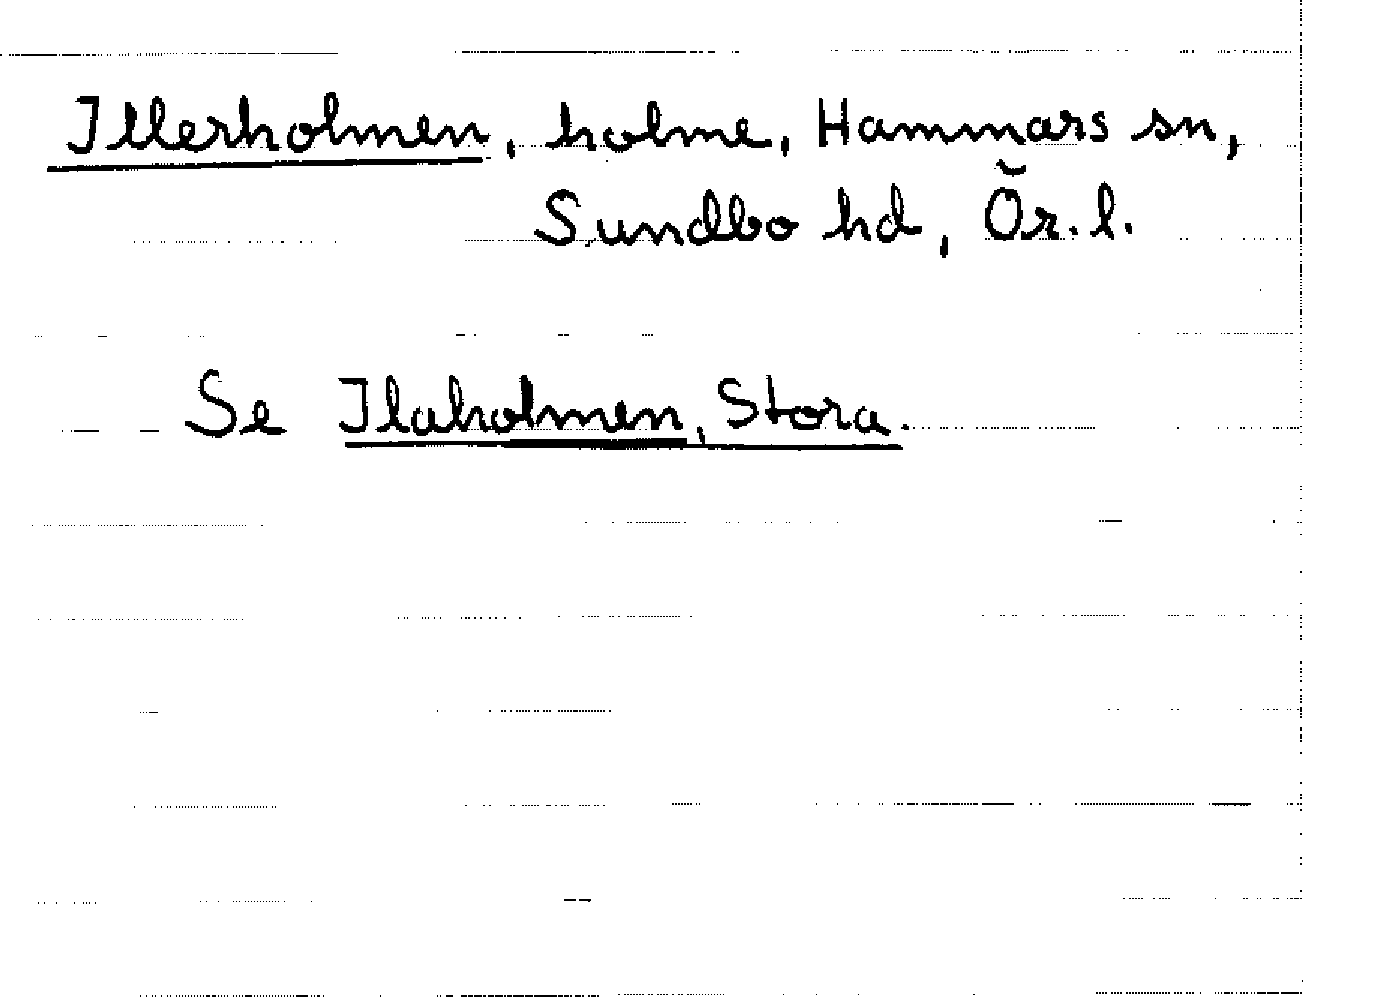 Illerholmen, holme, Hammars sn,
Sundbo hd, Ör. l.
Se Ilaholmen, Stora.